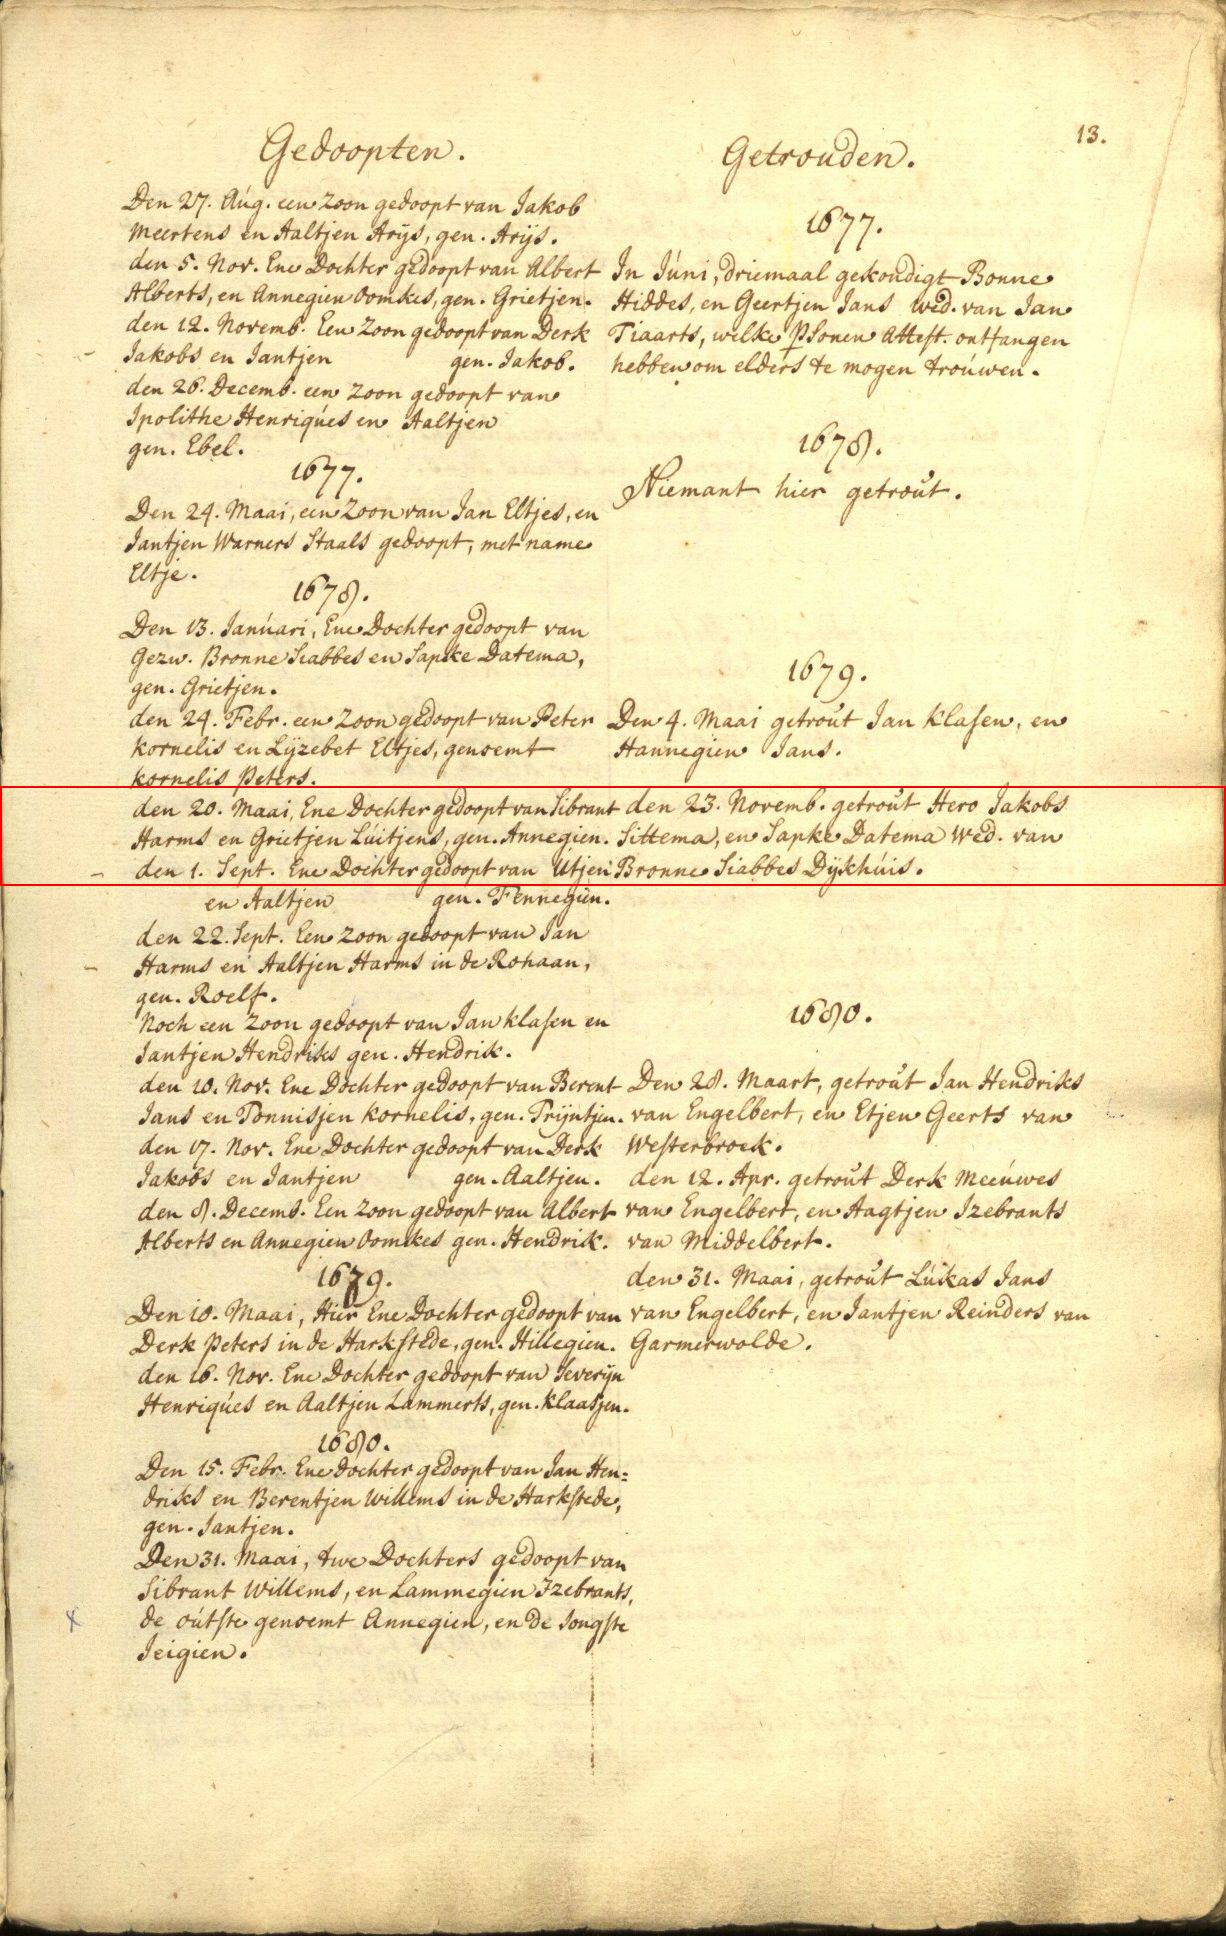 13.
Gedoopten.
Den 27. Aúg. een Zoon gedoopt van Jakob
Meertens en Aaltjen Arÿs, gen. Arÿs.
den 5. Nov. Ene Dochter gedoopt van Albert
Alberts, en Annegien Oomkes, gen. Grietjen.
den 12. Novemb. Een Zoon gedoopt van Derk
Jakobs en Jantjen gen. Jakob.
den 26. Decemb. een Zoon gedoopt van
Ipolithe Henriqúes en Aaltjen
gen. Ebel.
1677.
Den 24. Maai, een Zoon van Jan Eltjes, en
Jantjen Warners Staals gedoopt, met name
Eltje.
1678.
Den 13. Janúari, Ene Dochter gedoopt van
Gezw. Bronne Siabbes en Sapke Datema,
gen. Grietjen.
den 24. Febr. een Zoon gedoopt van Peter
kornelis en Lÿzebet Eltjes, genoemt
kornelis Peters.
den 20. Maai, Ene Dochter gedoopt van Sibrant
Harms en Grietjen Lúitjens, gen. Annegien.
den 1. Sept. Ene Dochter gedoopt van Utjen
en Aaltjen gen. Fennegien.
den 22. Sept. Een Zoon gedoopt van Jan
Harms en Aaltjen Harms in de Rohaan,
gen. Roelf.
Noch een Zoon gedoopt van Jan klasen en
Jantjen Hendriks gen. Hendrik.
den 10. Nov. Ene Dochter gedoopt van Berent
Jans en Tonnisjen kornelis, gen. Trÿntjen.
den 17. Nov. Ene Dochter gedoopt van Derk
Jakobs en Jantjen gen. Aaltjen.
den 8. Decemb. Een Zoon gedoopt van Albert
Alberts en Annegien Oomkes gen. Hendrik.
1679.
Den 10. Maai, Hier Ene Dochter gedoopt van
Derk Peters in de Harkstede, gen. Hillegien.
den 16. Nov. Ene Dochter gedoopt van Severÿn
Henriqúes en Aaltjen Lammerts, gen. klaasjen.
1680.
Den 15. Febr. Ene Dochter gedoopt van Jan Hen=
driks en Berentjen Willems in de Harkstede,
gen. Jantjen.
Den 31. Maai, twe Dochters gedoopt van
Sibrant Willems, en Lammegien Izebrants,
de oútste genoemt Annegien, en de Jongste
Jeigien.
Getrouden.
1677.
In Júni, driemaal gekondigt Bonne
Hiddes, en Geertjen Jans wed. van Jan
Tiaarts, welke PSonen Attest. ontfangen
hebben om elders te mogen troúwen.
1678.
Niemant hier getroút.
1679.
Den 4. Maai getroút Jan klasen, en
Hannegien Jans.
den 23. Novemb. getroút Hero Jakobs
Sittema, en Sapke Datema Wed. van
Bronne Siabbes Dÿkhúis.
1680.
Den 28. Maart, getroút Jan Hendriks
van Engelbert, en Etjen Geerts van
Westerbroek.
den 12. Apr. getroút Derk Meeúwes
van Engelbert, en Aagtjen Izebrants
van Middelbert.
den 31. Maai, getroút Lúkas Jans
van Engelbert, en Jantjen Reinders van
Garmerwolde.